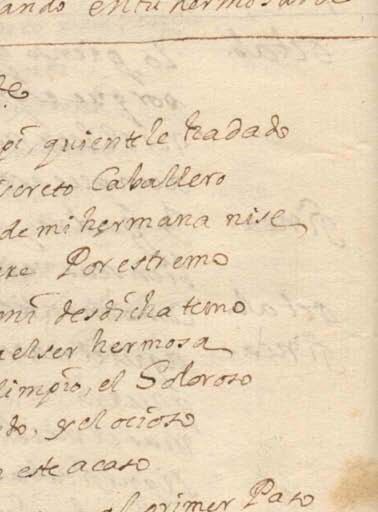 ando en tu hermosura
de
pi, quiente le ha dado
screto Caballero
de mi hermana nise
ere Por estremo
mi desdicha temo
a el ser hermosa
limpio, el Doloroso
do, y el ocioso
n este acaso
al primer Paso